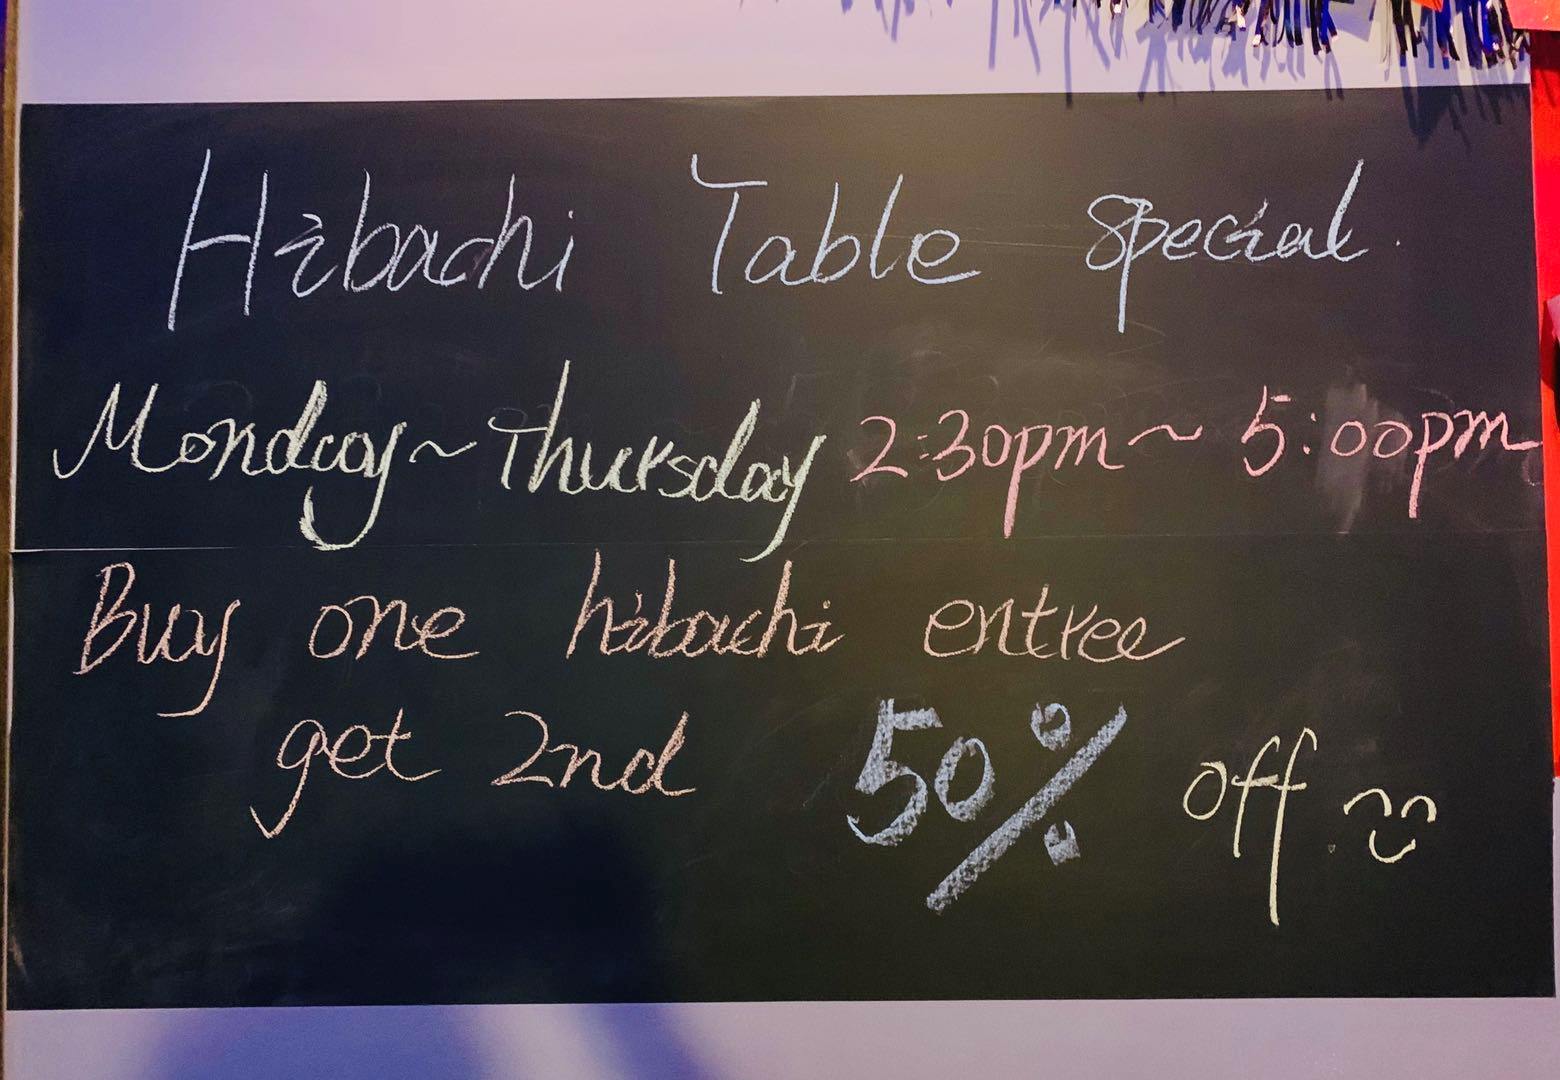 Hibachi Table Special
Monday~Thursday 2:30pm~5:00pm
Buy one hibachi entree
get 2nd 50% off